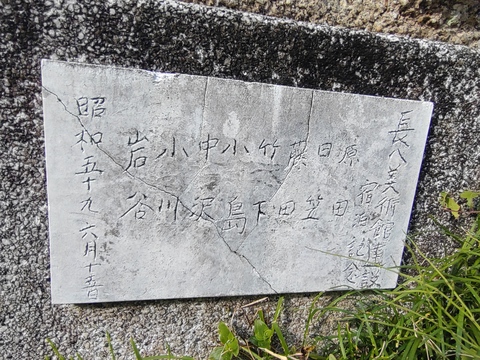 長八美術館建設
宿泊記念
源田
日笠
藤田
竹下
小島
中沢
小川
岩谷
昭和五十九 六月十五日